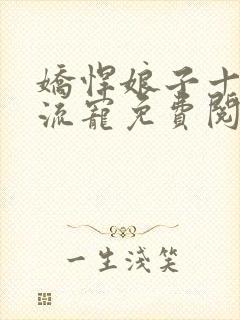 嬌悍娘子十
流寵免費閱
一生淺笑